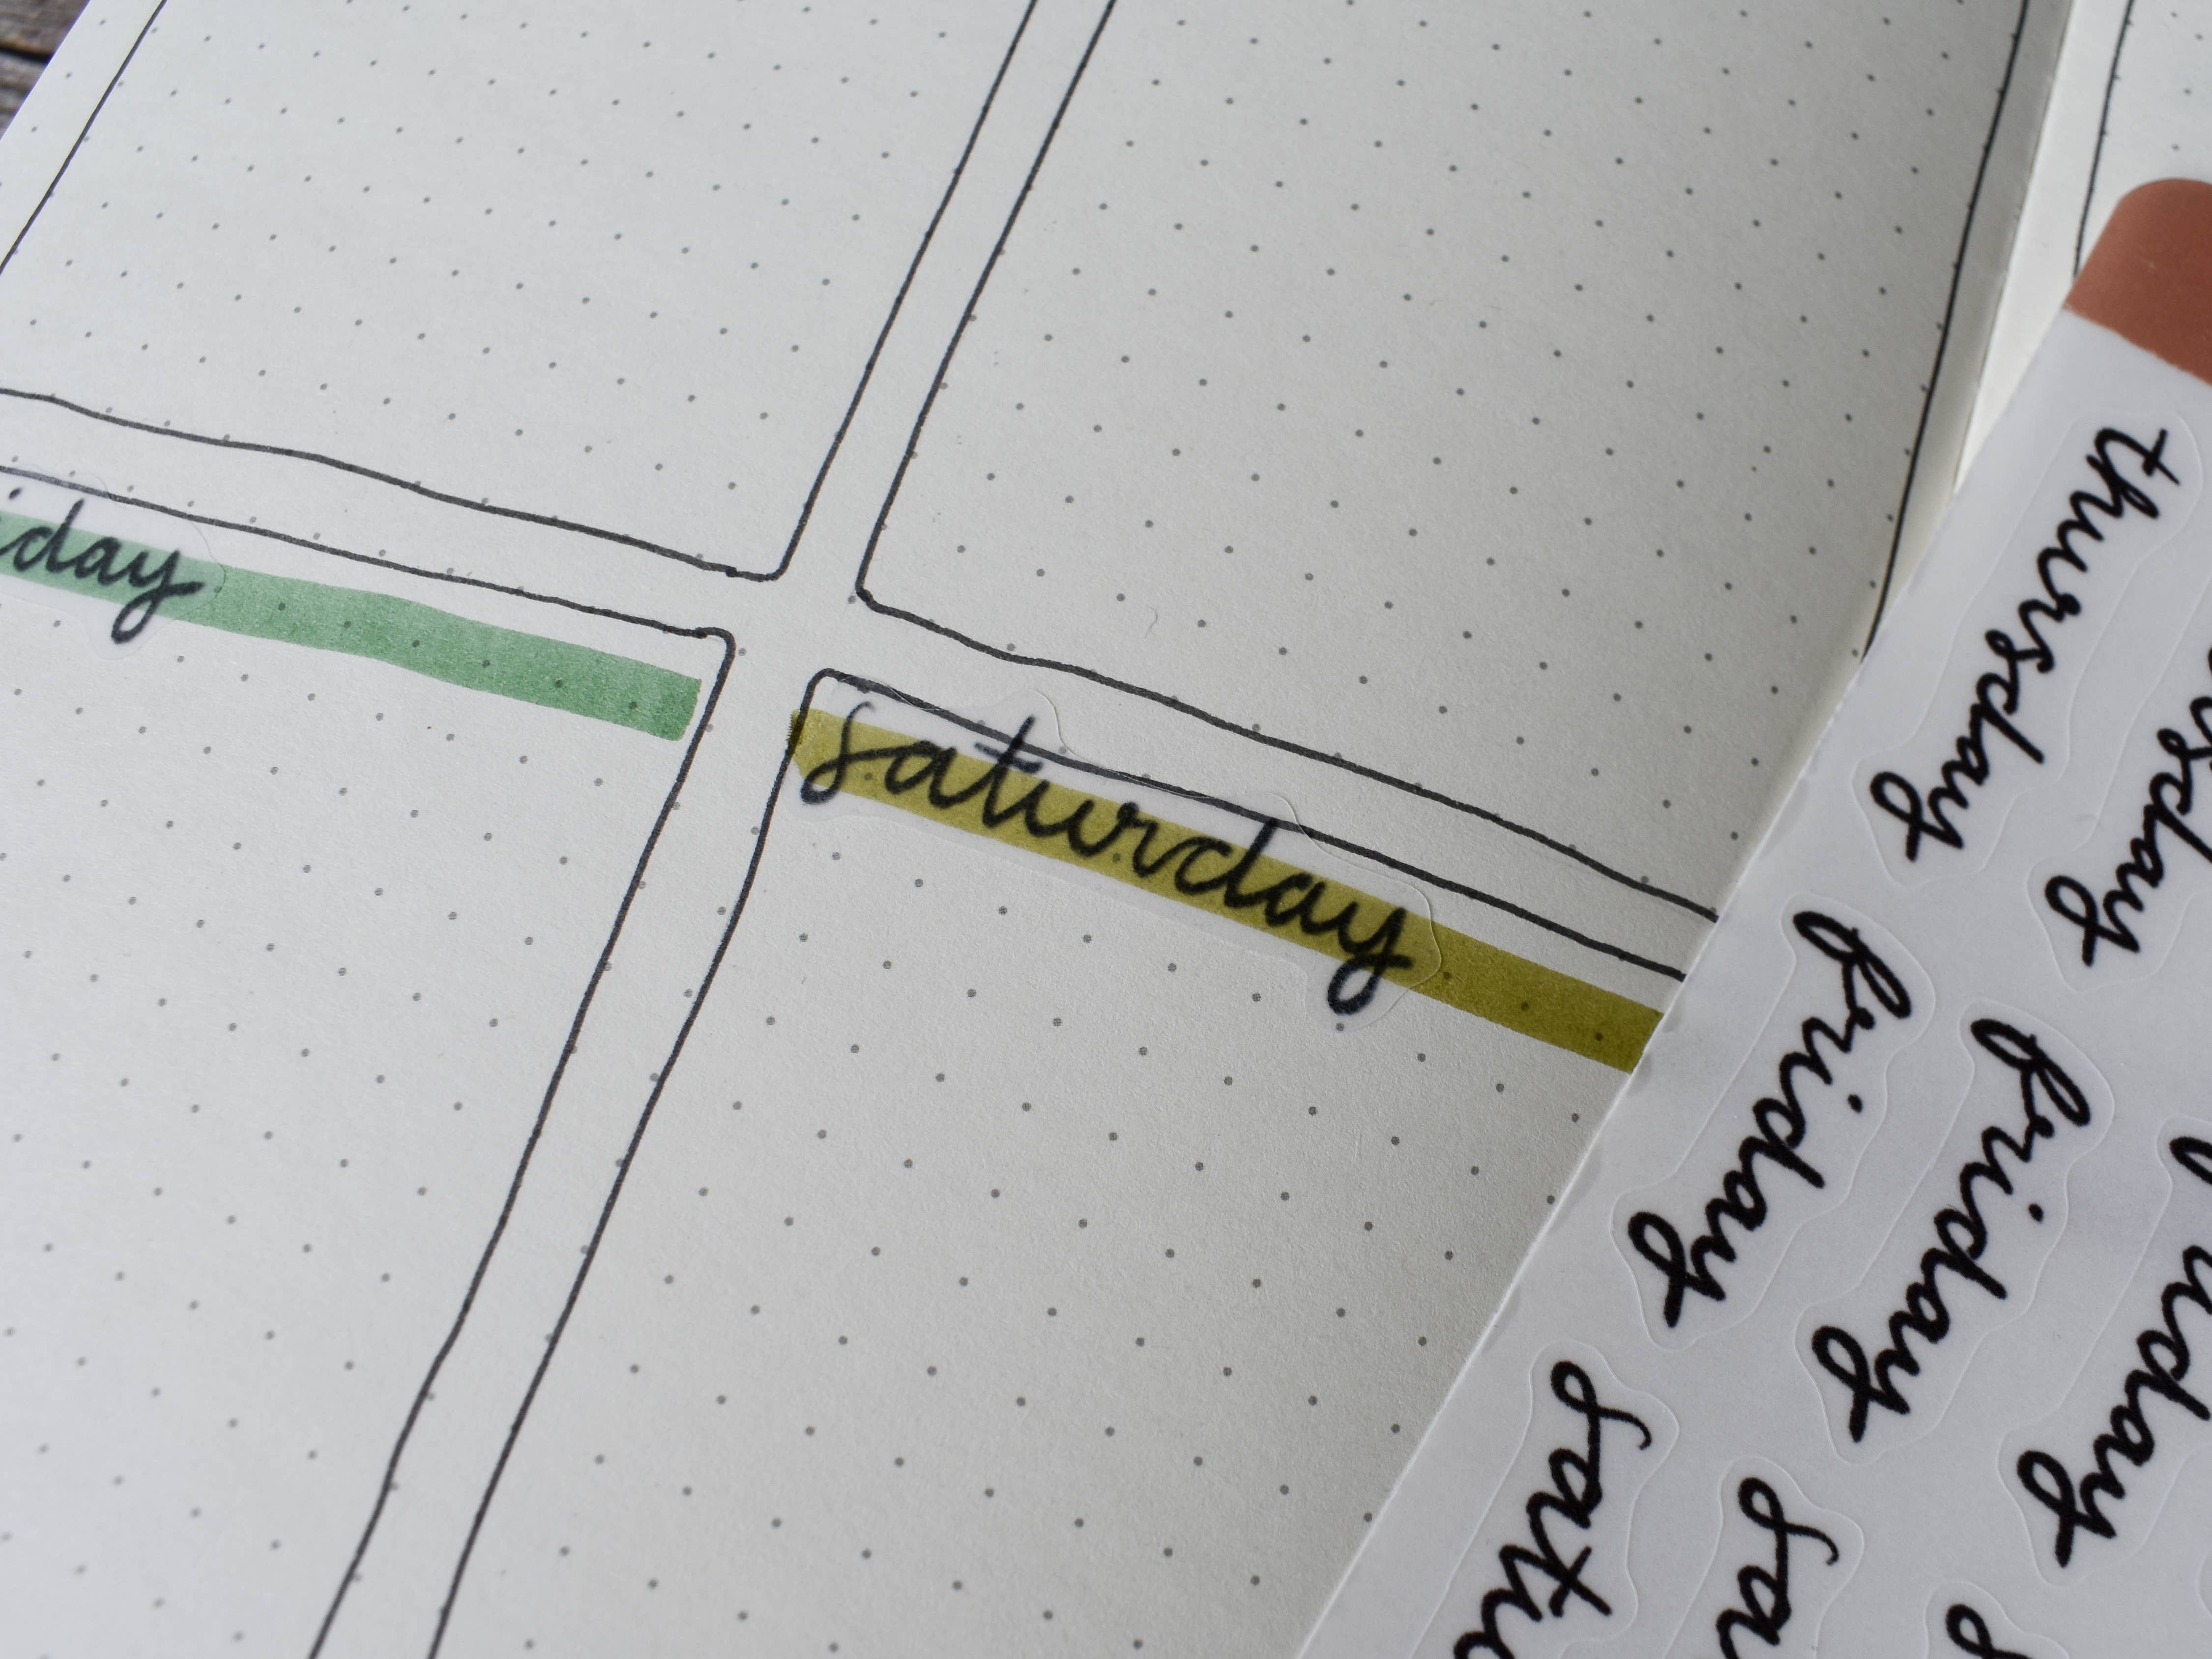 iday
saturday
thursday
sday
friday
friday
iday
satu
sa
s